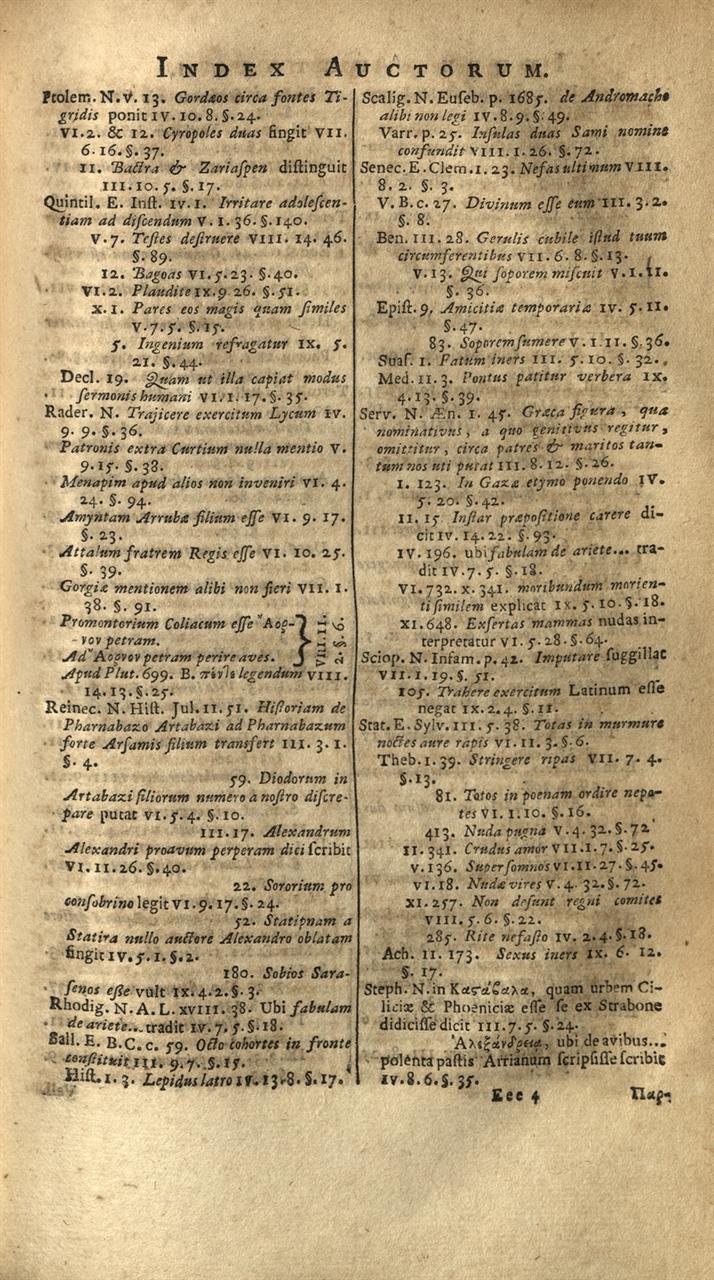 INDEX AUCTORUM.
Ptolem. N. v. 13. Gordæos circa fontes Ti-
gridis ponit IV. 10. 8. §. 24.
VI. 2. & 12. Cyropoles duas fingit VII.
6. 16. §. 37.
11. Bactra & Zariaspen distinguit
III. 10. 5. §. 17.
Quintil. E. Inst. IV. 1. Irritare adolescen-
tiam ad discendum V. 1. 36. §. 140.
V. 7. Testes destruere VIII. 14. 46.
§. 89.
12. Bagoas VI. 5. 23. §. 40.
VI. 2. Plaudite IX. 9 26. §. 51.
X. 1. Pares eos magis quam similes
V. 7. 5. §. 15.
5. Ingenium refragatur IX. 5.
21. §. 44.
Decl. 19. Quam ut illa capiat modus
sermonis humani VI. 1. 17. §. 35.
Rader. N. Trajicere exercitum Lycum IV.
9. 9. §. 36.
Patronis extra Curtium nulla mentio V.
9. 15. §. 38.
Menapim apud alios non inveniri VI. 4.
24. §. 94.
Amyntam Arrubæ filium esse VI. 9. 17.
§. 23.
Attalum fratrem Regis esse VI. 10. 25.
§. 39.
Gorgiæ mentionem alibi non fieri VII. 1.
38. §. 91.
Promontorium Coliacum esse Ἄορ-
νον petram.
Ad Ἄορνον petram perire aves.
VIII. 11.
2. §. 6.
Apud Plut. 699. B. legendum VIII.
14. 13. §. 25.
Reinec. N. Hist. Jul. 11. 51. Historiam de
Pharnabazo Artabazi ad Pharnabazum
forte Arsamis filium transfert III. 3. 1.
§. 4.
59. Diodorum in
Artabazi filiorum numero a nostro discre-
pare putat VI. 5. 4. §. 10.
III. 17. Alexandrum
Alexandri proavum perperam dici scribit
VI. 11. 26. §. 40.
22. Sororium pro
consobrino legit VI. 9. 17. §. 24.
52. Statipnam a
Statira nullo auctore Alexandro oblatam
fingit IV. 5. 1. §. 2.
180. Sobios Sara-
senos esse vult IX. 4. 2. §. 3.
Rhodig. N. A. L. XVIII. 38. Ubi fabulam
de ariete... tradit IV. 7. 5. §. 18.
Sall. E. B. C. c. 59. Octo cohortes in fronte
constituit III. 9. 7. §. 15.
Hist. 1. 3. Lepidus latro IV. 13. 8. §. 17.
Scalig. N. Euseb. p. 1685. de Andromacho
alibi non legi IV. 8. 9. §. 49.
Varr. p. 25. Insulas duas Sami nomine
confundit VIII. 1. 26. §. 72.
Senec. E. Clem. 1. 23. Nefas ultimum VIII.
8. 2. §. 3.
V. B. c. 27. Divinum esse eum III. 3. 2.
§. 8.
Ben. III. 28. Gerulis cubile istud tuum
circumferentibus VII. 6. 8. §. 13.
V. 13. Qui soporem miscuit V. 1. 11.
§. 36.
Epist. 9. Amicitiæ temporariæ IV. 5. 11.
§. 47.
83. Soporem sumere V. 1. 11. §. 36.
Suas. 1. Fatum iners III. 5. 10. §. 32.
Med. 11. 3. Pontus patitur verbera IX.
4. 13. §. 39.
Serv. N. Æn. 1. 45. Græca figura, quæ
nominativus, a quo genitivus regitur,
omittitur, circa patres & maritos tan-
tum nos uti putat III. 8. 12. §. 26.
1. 123. In Gazæ etymo ponendo IV.
5. 20. §. 42.
II. 15 Instar præpositione carere di-
cit IV. 14. 22. §. 93.
IV. 196. ubi fabulam de ariete... tra-
dit IV. 7. 5. §. 18.
VI. 732. X. 341. moribundum morien-
ti similem explicat IX. 5. 10. §. 18.
XI. 648. Exsertas mammas nudas in-
terpretatur VI. 5. 28. §. 64.
Sciop. N. Infam. p. 42. Imputare suggillat
VII. 1. 19. §. 51.
105. Trahere exercitum Latinum esse
negat IX. 2. 4. §. 11.
Stat. E. Sylv. III. 5. 38. Totas in murmure
noctes aure rapis VI. 11. 3. §. 6.
Theb. 1. 39. Stringere ripas VII. 7. 4.
§. 13.
81. Totos in poenam ordire nepo-
tes VI. 1. 10. §. 16.
413. Nuda pugna V. 4. 32. §. 72
II. 341. Crudus amor VII. 1. 7. §. 25.
V. 136. Super somnos VI. 11. 27. §. 45.
VI. 18. Nudæ vires V. 4. 32. §. 72.
XI. 257. Non desunt regni comites
VIII. 5. 6. §. 22.
285. Rite nefasto IV. 2. 4. §. 18.
Ach. 11. 173. Sexus iners IX. 6. 12.
§. 17.
Steph. N. in Καστάβαλα, quam urbem Ci-
liciæ & Phoeniciæ esse se ex Strabone
didicisse dicit III. 7. 5. §. 24.
Ἀλεξάνδρεια, ubi de avibus...
polenta pastis Arrianum scripsisse scribit
IV. 8. 6. §. 35.
Eee 4
Παρ-